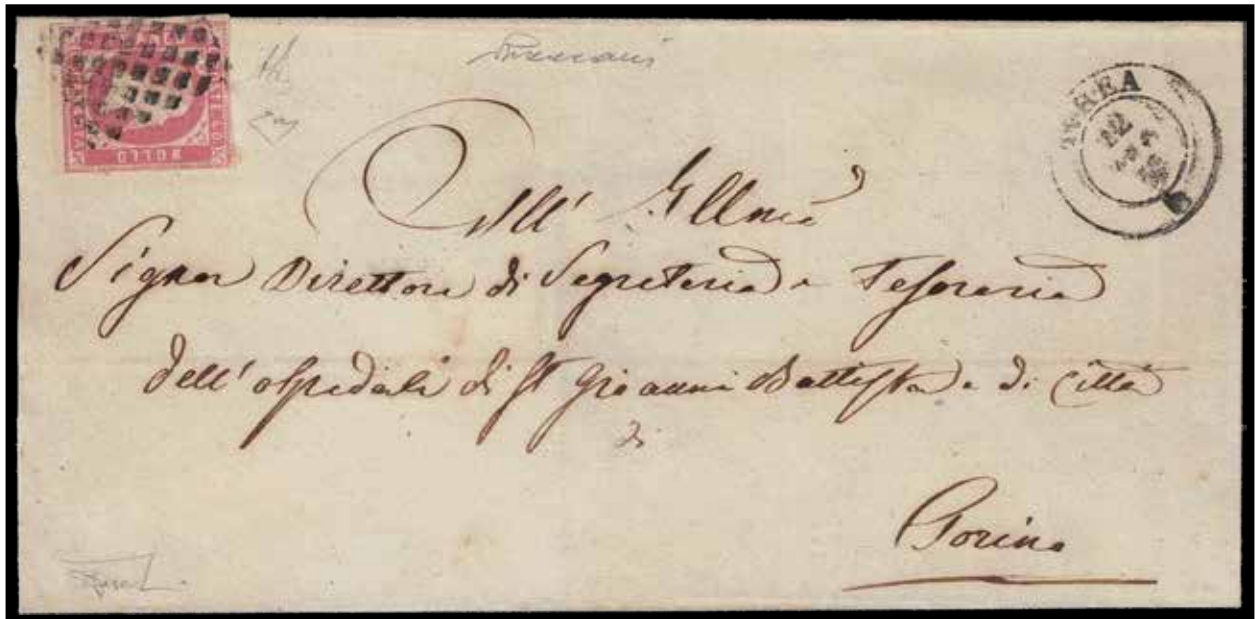 BOLLO
IVREA
12
All' Illmo
Signor Direttore di Segreteria e Tesoreria
dell' ospedale di St Giovanni Battista e di Città
di
Torino